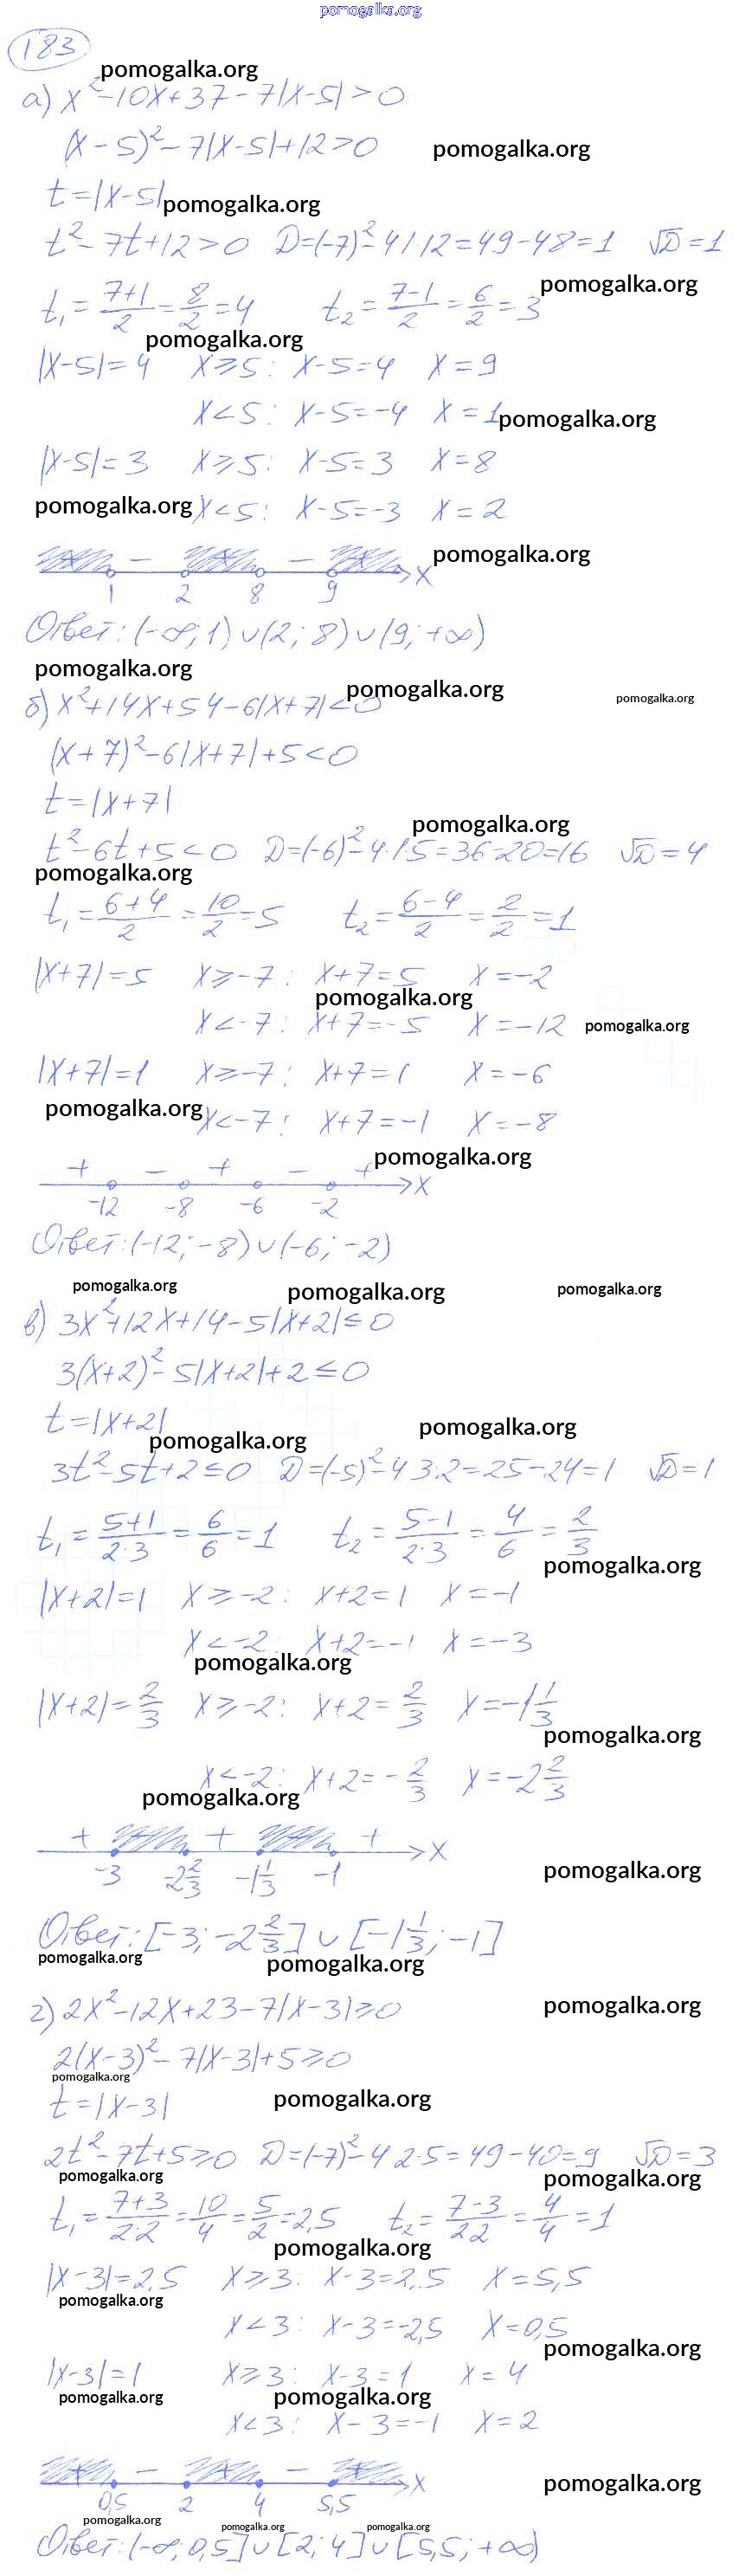 pomogalka.org
183
pomogalka.org
а) x²-10x+37-7|x-5|>0
(x-5)²-7|x-5|+12>0 pomogalka.org
t=|x-5| pomogalka.org
t²-7t+12>0 D=(-7)²-4·1·12=49-48=1 √D=1
t₁=(7+1)/2=8/2=4 t₂=(7-1)/2=6/2=3 pomogalka.org
pomogalka.org
|x-5|=4 x≥5: x-5=4 x=9
x<5: x-5=-4 x=1 pomogalka.org
|x-5|=3 x≥5: x-5=3 x=8
pomogalka.org x<5: x-5=-3 x=2
+ - + - + x pomogalka.org
1 2 8 9
Ответ: (-∞; 1)∪(2; 8)∪(9; +∞)
pomogalka.org pomogalka.org pomogalka.org
б) x²+14x+54-6|x+7|<0
(x+7)²-6|x+7|+5<0
t=|x+7|
pomogalka.org
t²-6t+5<0 D=(-6)²-4·1·5=36-20=16 √D=4
pomogalka.org
t₁=(6+4)/2=10/2=5 t₂=(6-4)/2=2/2=1
|x+7|=5 x≥-7: x+7=5 x=-2
pomogalka.org
x<-7: x+7=-5 x=-12 pomogalka.org
|x+7|=1 x≥-7: x+7=1 x=-6
pomogalka.org x<-7: x+7=-1 x=-8
+ - + - + x pomogalka.org
-12 -8 -6 -2
Ответ: (-12; -8)∪(-6; -2)
pomogalka.org pomogalka.org pomogalka.org
в) 3x²+12x+14-5|x+2|≤0
3(x+2)²-5|x+2|+2≤0
t=|x+2|
pomogalka.org pomogalka.org
3t²-5t+2≤0 D=(-5)²-4·3·2=25-24=1 √D=1
t₁=(5+1)/(2·3)=6/6=1 t₂=(5-1)/(2·3)=4/6=2/3
pomogalka.org
|x+2|=1 x≥-2: x+2=1 x=-1
x<-2: x+2=-1 x=-3
pomogalka.org
|x+2|=2/3 x≥-2: x+2=2/3 x=-1 1/3
pomogalka.org
x<-2: x+2=-2/3 x=-2 2/3
pomogalka.org
+ + + x
-3 -2 2/3 -1 1/3 -1 pomogalka.org
Ответ: [-3; -2 2/3]∪[-1 1/3; -1]
pomogalka.org pomogalka.org
г) 2x²-12x+23-7|x-3|≥0 pomogalka.org
2(x-3)²-7|x-3|+5≥0
pomogalka.org
t=|x-3| pomogalka.org
2t²-7t+5≥0 D=(-7)²-4·2·5=49-40=9 √D=3
pomogalka.org pomogalka.org
t₁=(7+3)/(2·2)=10/4=5/2=2,5 t₂=(7-3)/(2·2)=4/4=1
pomogalka.org
|x-3|=2,5 x≥3: x-3=2,5 x=5,5
pomogalka.org
x<3: x-3=-2,5 x=0,5
pomogalka.org
|x-3|=1 x≥3: x-3=1 x=4
pomogalka.org pomogalka.org
x<3: x-3=-1 x=2
+ - + - + x pomogalka.org
0,5 2 4 5,5
pomogalka.org pomogalka.org pomogalka.org
Ответ: (-∞; 0,5]∪[2; 4]∪[5,5; +∞)